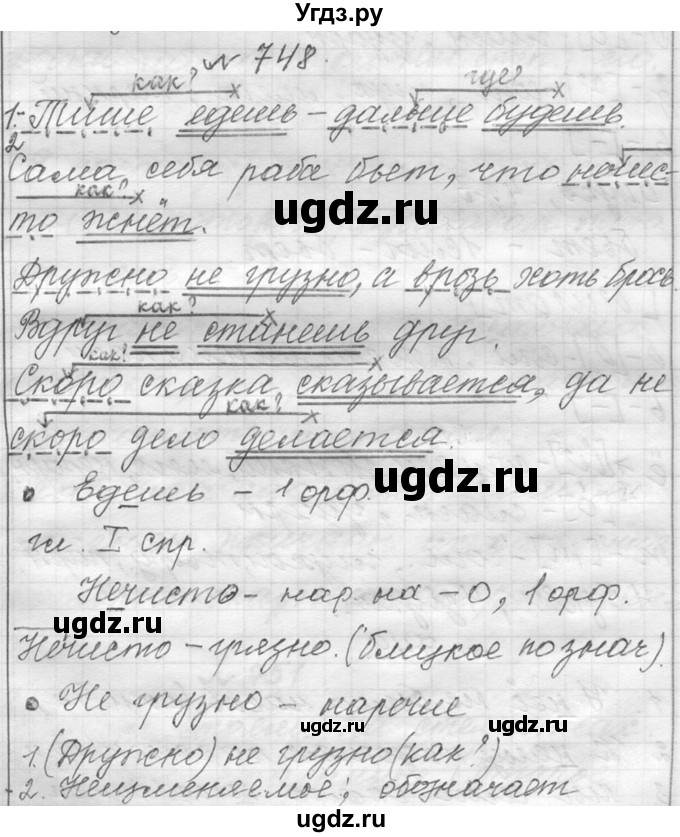 Угдз.ру
№ 748.
как? х где?
1. Тише едешь – дальше будешь.
2
Сама себя раба бьет, что нечис-
как? х
то жнёт.
Дружно не грузно, а врозь хоть брось.
как? х
Вдруг не станешь друг.
как? х
Скоро сказка сказывается, да не
как? х
скоро дело делается.
Едешь – 1 орф.
гл. I спр.
Нечисто – нар. на –О, 1 орф.
Нечисто – грязно. (близкое по знач).
Не грузно – наречие
1. (Дружно) не грузно (как?)
2. Неизменяемое; обозначает
ugdz.ru
ugdz.ru
ugdz.ru
ugdz.ru
ugdz.ru
ugdz.ru
ugdz.ru